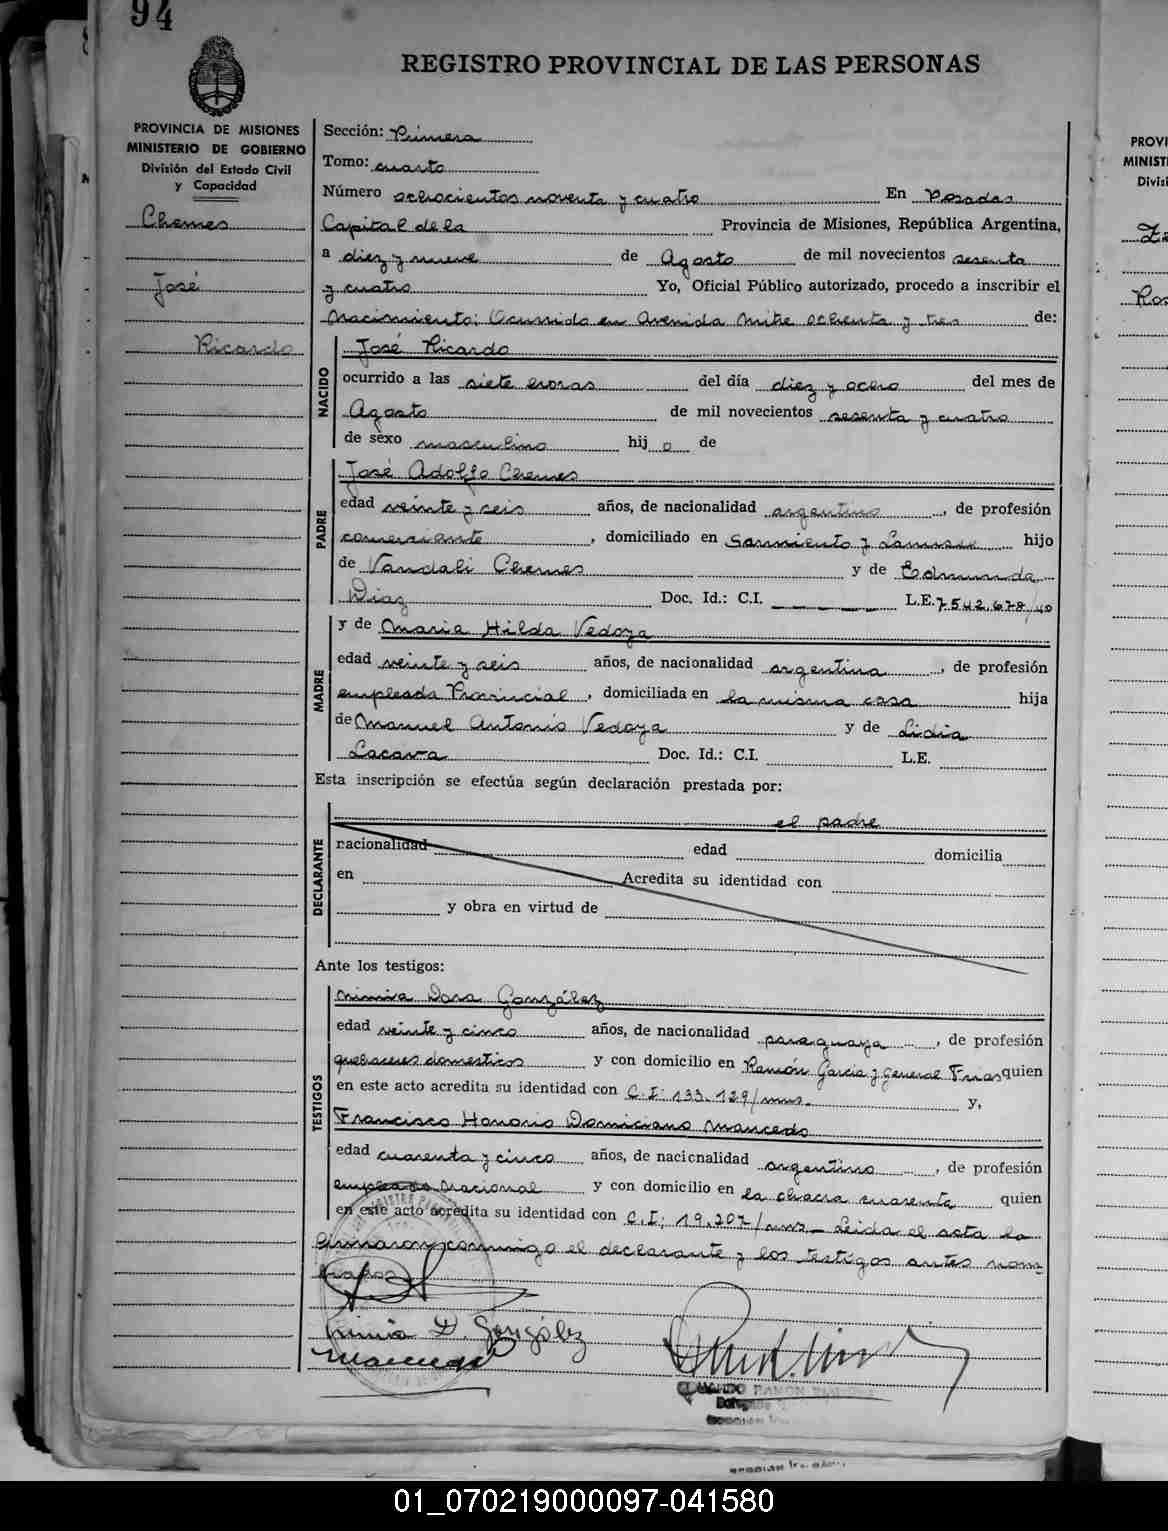 94
REGISTRO PROVINCIAL DE LAS PERSONAS
PROVINCIA DE MISIONES
MINISTERIO DE GOBIERNO
División del Estado Civil
y Capacidad
Chemes
José
Ricardo
Sección: Primera
Tomo: cuarto
Número ochocientos noventa y cuatro En Posadas
Capital de la Provincia de Misiones, República Argentina,
a diez y nueve de Agosto de mil novecientos sesenta
y cuatro Yo, Oficial Público autorizado, procedo a inscribir el
Nacimiento: Ocurrido en Avenida Mitre ochenta y tres de:
NACIDO
José Ricardo
ocurrido a las siete horas del día diez y ocho del mes de
Agosto de mil novecientos sesenta y cuatro
de sexo masculino hij o de
PADRE
José Adolfo Chemes
edad veinte y seis años, de nacionalidad argentino, de profesión
comerciante, domiciliado en Sarmiento y hijo
de Vandali Chemes y de Edmunda
Diaz Doc. Id.: C.I. L.E. 7.542.678
MADRE
y de Maria Hilda Vedoya
edad veinte y seis años, de nacionalidad argentina, de profesión
empleada Provincial, domiciliada en la misma casa hija
de Manuel Antonio Vedoya y de Lidia
Lacava Doc. Id.: C.I. L.E.
Esta inscripción se efectúa según declaración prestada por:
DECLARANTE
el padre
nacionalidad edad domicilia
en Acredita su identidad con
y obra en virtud de
Ante los testigos:
TESTIGOS
Dora González
edad veinte y cinco años, de nacionalidad paraguaya, de profesión
quehaceres domesticos y con domicilio en Ramón García y General Frias quien
en este acto acredita su identidad con C.I: 133.129/mns. y,
Francisco Honorio Domiciano Mancedo
edad cuarenta y cinco años, de nacionalidad argentino, de profesión
empleado Nacional y con domicilio en la chacra cuarenta quien
en este acto acredita su identidad con C.I; 19.207/mns_ Leida el acta la
firmaron conmigo el declarante y los testigos antes nom
brados
D. González
PROVI
MINIST
Divis
01_070219000097-041580